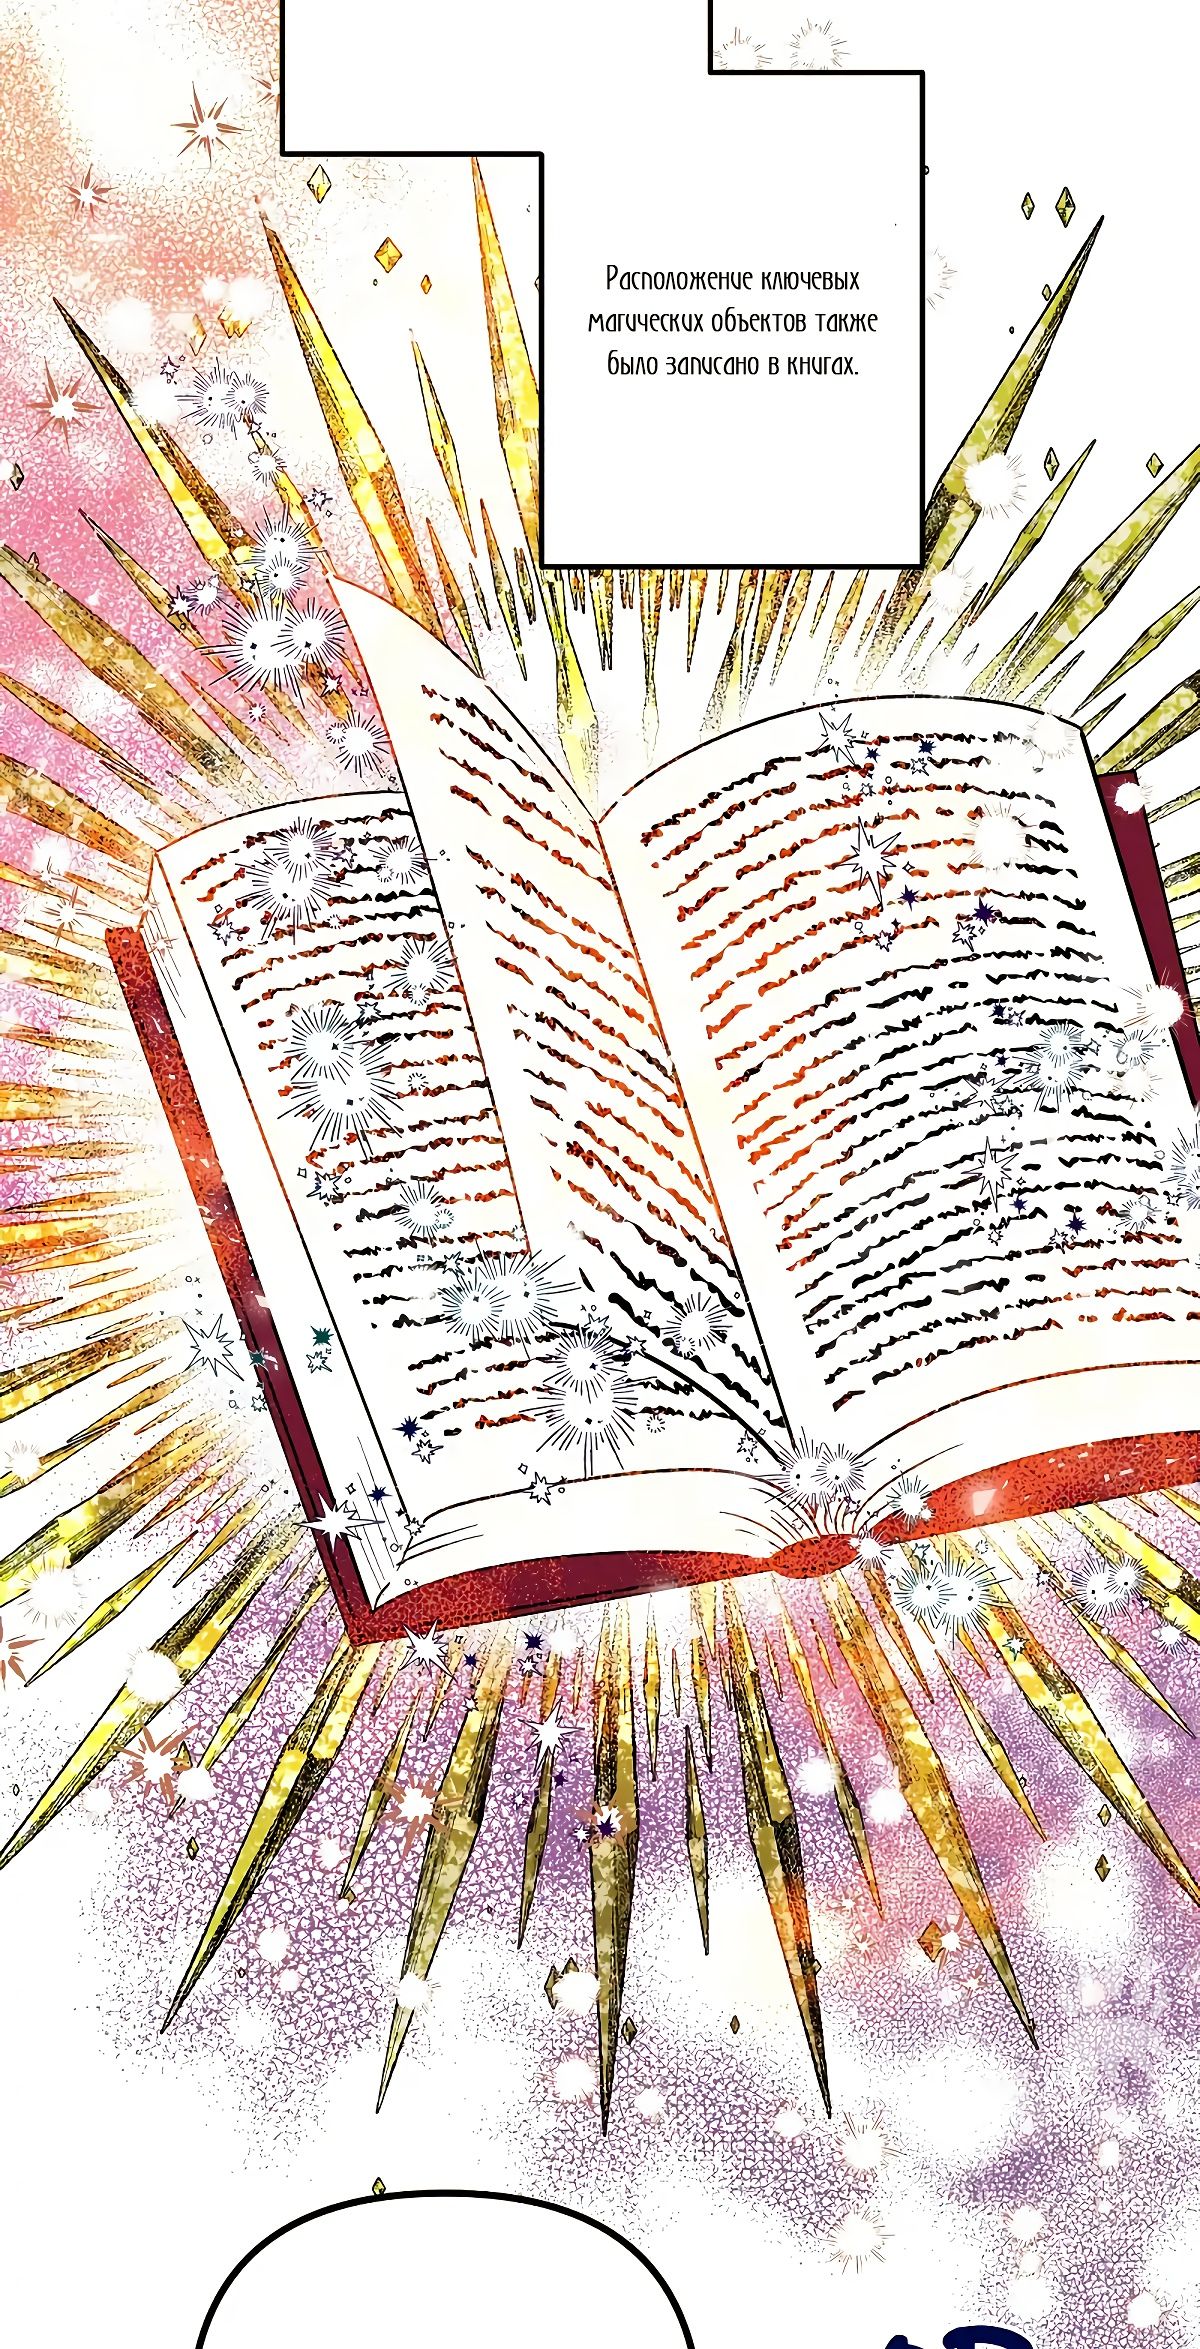 Расположение ключевых
магических объектов также
было записано в книгах.